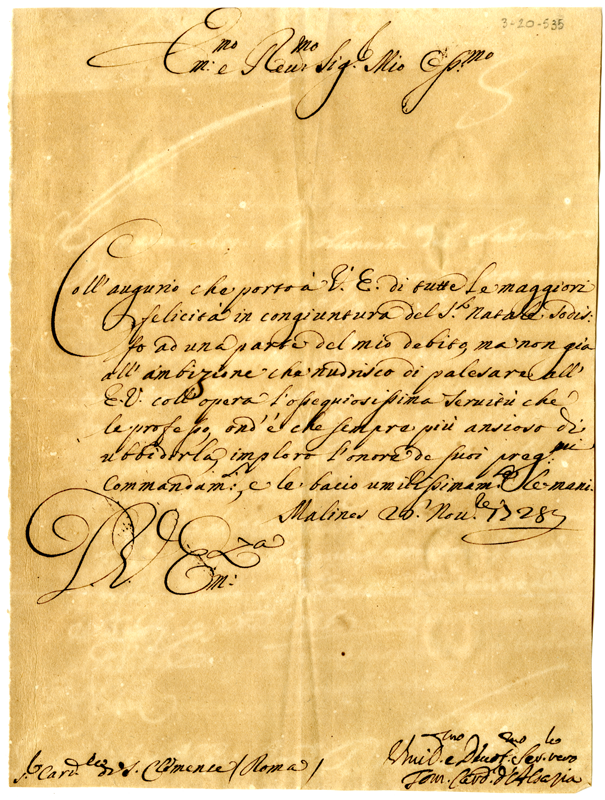 3-20-535
Em.mo e Reu.mo Sig.r Mio Oss.mo
Coll'augurio che porto à V. E. di tutte le maggiori
felicità in congiuntura del S.to Natale Sodis-
fo ad una parte del mio debito, ma non già
all'ambizione che nudrisco di palesare all'
E. V. coll'opera l'ossequiosissima seruitù che
le professo, ond'è che sempre più ansioso di
ubbidirla, imploro l'onore de suoi preg.mi
Commandam.ti, e le bacio umilissimam.te le mani.
Malines 26 Nou.re 1728
D V. Eza
Em.
S.r Card.le di S. Clemente (Roma)
Umil.mo e Diuot.mo Ser.re vero
Tom. Card. d'Alsazia